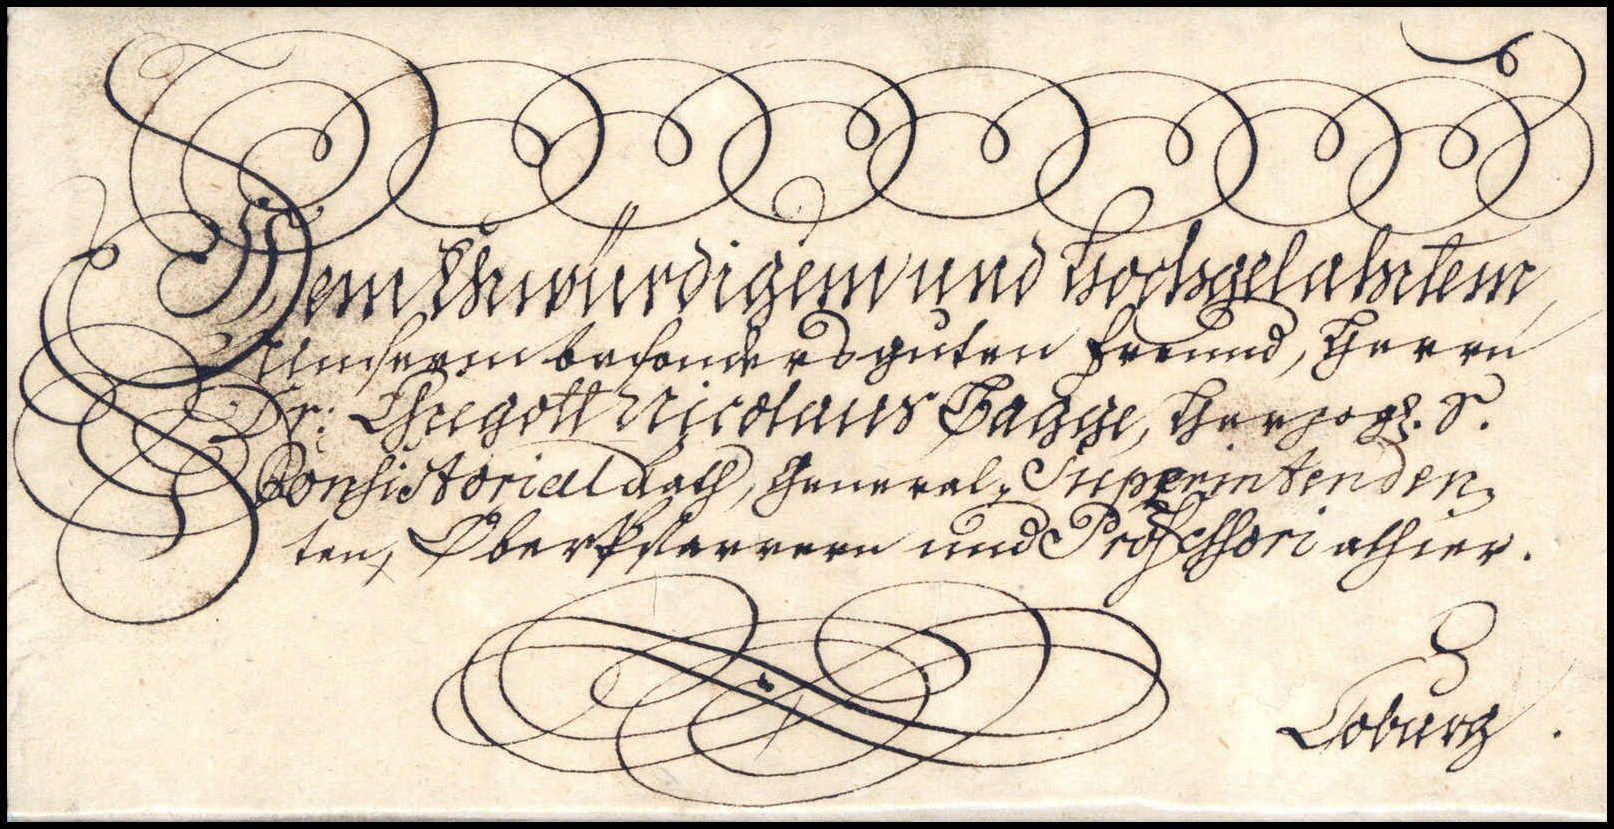 Dem Ehrwürdigem und Hochgelahrtem
Unserm besonders guten Freund, Herrn
Dr: Ehregott Nicolaus Bagge, Herzogl. S.
Consistorial Rath, General-Superintenden-
ten, Oberpfarrern und Professori alhier.
Coburg.